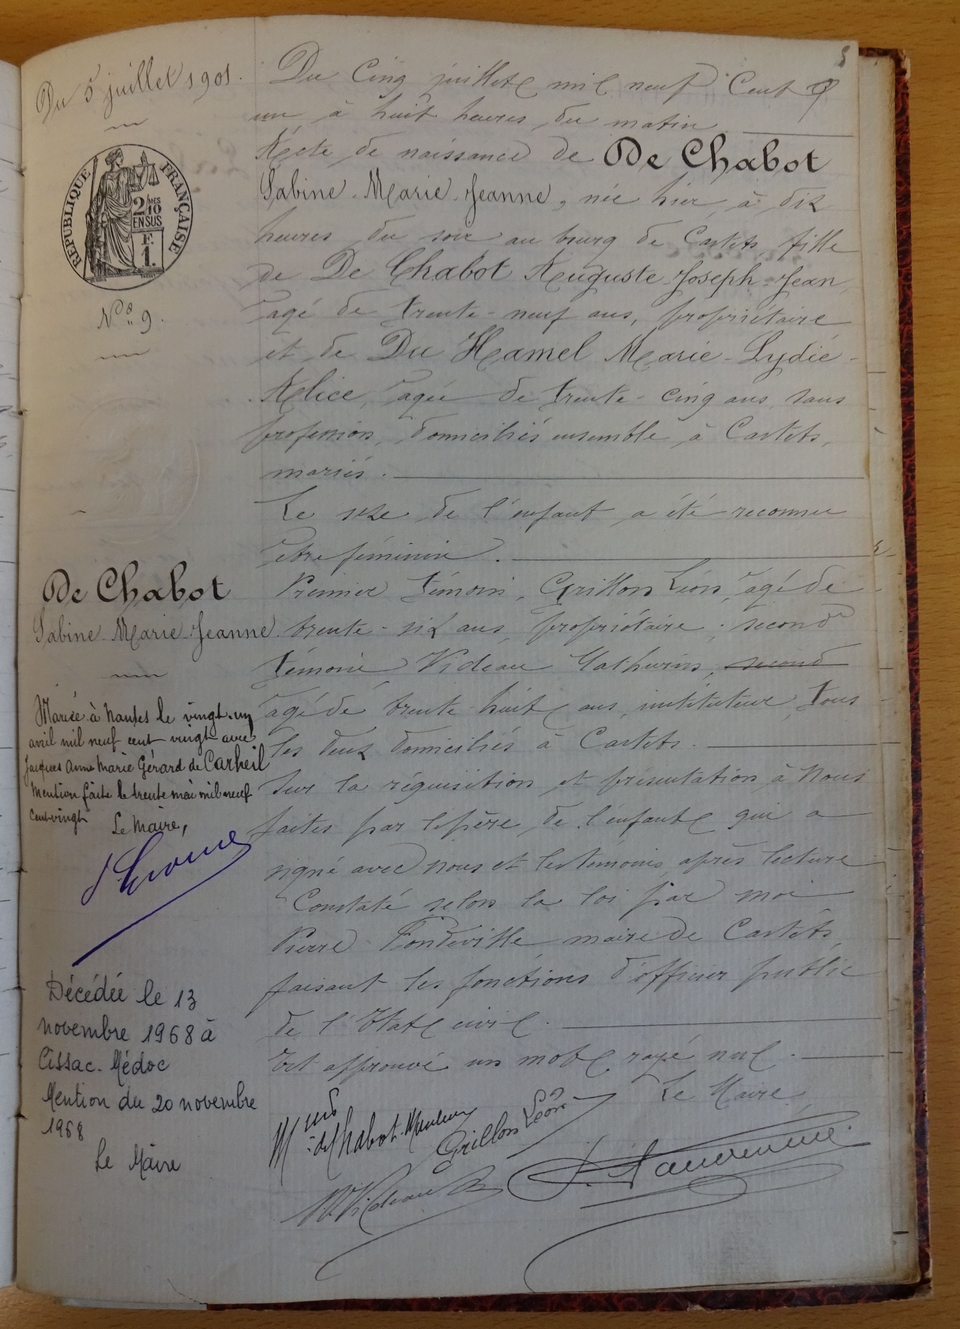 Du 5 juillet 1901.
RÉPUBLIQUE FRANÇAISE
2/10
EN SUS
F.
1.
N° 9.
De Chabot
Sabine-Marie-Jeanne
Mariée à Nantes le vingt-un
avril mil neuf cent vingt avec
Jacques Anne Marie Gérard de Carheil
Mention faite le trente mai mil neuf
cent vingt
Le Maire,
Décédée le 13
novembre 1968 à
Cissac-Médoc
Mention du 20 novembre
1968
Le Maire
Du Cinq juillet mil neuf Cent
un à huit heures du matin
Acte de naissance de De Chabot
Sabine-Marie-Jeanne, née hier, à dix
heures du soir au bourg de Castets, fille
de De Chabot Auguste-Joseph-Jean
agé de trente-neuf ans, propriétaire
et de Du Hamel Marie-Lydie-
Alice, agée de trente-cinq ans, sans
profession, domiciliés ensemble à Castets,
mariés.
Le sexe de l'enfant a été reconnu
être féminin.
Premier témoin, Grillon Léon, agé de
trente-six ans, propriétaire; second
témoin Videau Mathurin, second
agé de trente huit ans, instituteur, tous
les deux domiciliés à Castets.
Sur la réquisition et présentation à Nous
faites par le père de l'enfant qui a
signé avec nous et les témoins, après lecture
Constaté selon la loi par moi
Pierre maire de Castets,
faisant les fonctions d'officier public
de l'Etat civil.
Est approuvé un mot rayé nul.
Le Maire
de Chabot
Grillon Léon
M. Videau